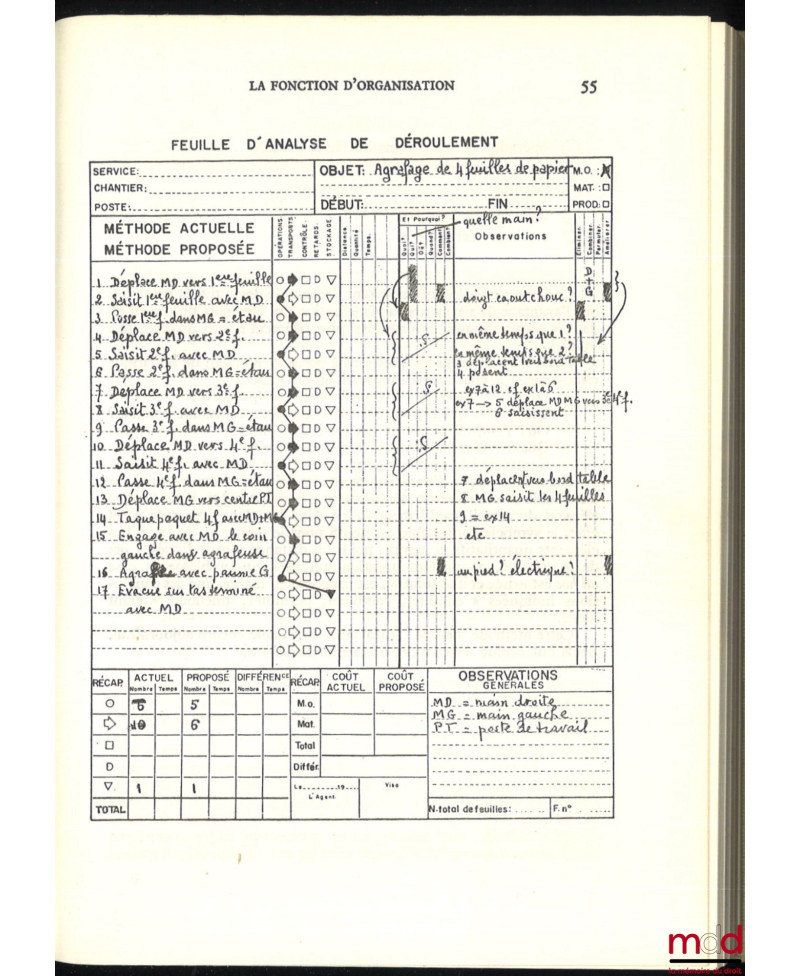 LA FONCTION D'ORGANISATION 55
FEUILLE D'ANALYSE DE DÉROULEMENT
SERVICE: OBJET: Agrafage de 4 feuilles de papier M.O. :
CHANTIER: MAT. :
POSTE: DÉBUT: FIN PROD:
MÉTHODE ACTUELLE
MÉTHODE PROPOSÉE
OPÉRATIONS
TRANSPORTS
CONTRÔLE
RETARDS
STOCKAGE
Distance
Quantité
Temps
Et Pourquoi?
Quoi?
Qui?
Où?
Quand?
Comment?
Combien?
quelle main?
Observations
Éliminer
Combiner
Permuter
Améliorer
D+G
1 Déplace MD vers 1ère feuille
2 Saisit 1ère feuille avec MD doigt caoutchouc?
3 Passe 1ère f. dans MG = étau
4 Déplace MD vers 2e f. en même temps que 1?
5 Saisit 2e f. avec MD en même temps que 2?
3 déplacent vers bord table
6 Passe 2e f. dans MG=étau 4 posent
7 Déplace MD vers 3e f. ex 7 à 12 cf ex 1 à 6
8 Saisit 3e f. avec MD ex 7 → 5 déplace MD MG vers 3e 4e f.
6 saisissent
9 Passe 3e f. dans MG=étau
10 Déplace MD vers 4e f.
11 Saisit 4e f. avec MD
12 Passe 4e f. dans MG=étau 7 déplacent vers bord table
13 Déplace MG vers centre P.T 8 MG saisit les 4 feuilles
14 Taque paquet 4 f avec MD+MG 9 = ex 14
15 Engage avec MD le coin etc
gauche dans agrafeuse
16 Agrafe avec paume G au pied? électrique?
17 Evacue sur tas terminé
avec MD
RÉCAP. ACTUEL PROPOSÉ DIFFÉRENCE RÉCAP. COÛT ACTUEL COÛT PROPOSÉ OBSERVATIONS GÉNÉRALES
Nombre Temps Nombre Temps Nombre Temps
6 5 M.o. MD = main droite
10 6 Mat. MG = main gauche
Total PT = poste de travail
D Différ.
1 1 Le 19 Visa
L'Agent
TOTAL N. total de feuilles: F. n°
mdd
la mémoire du droit